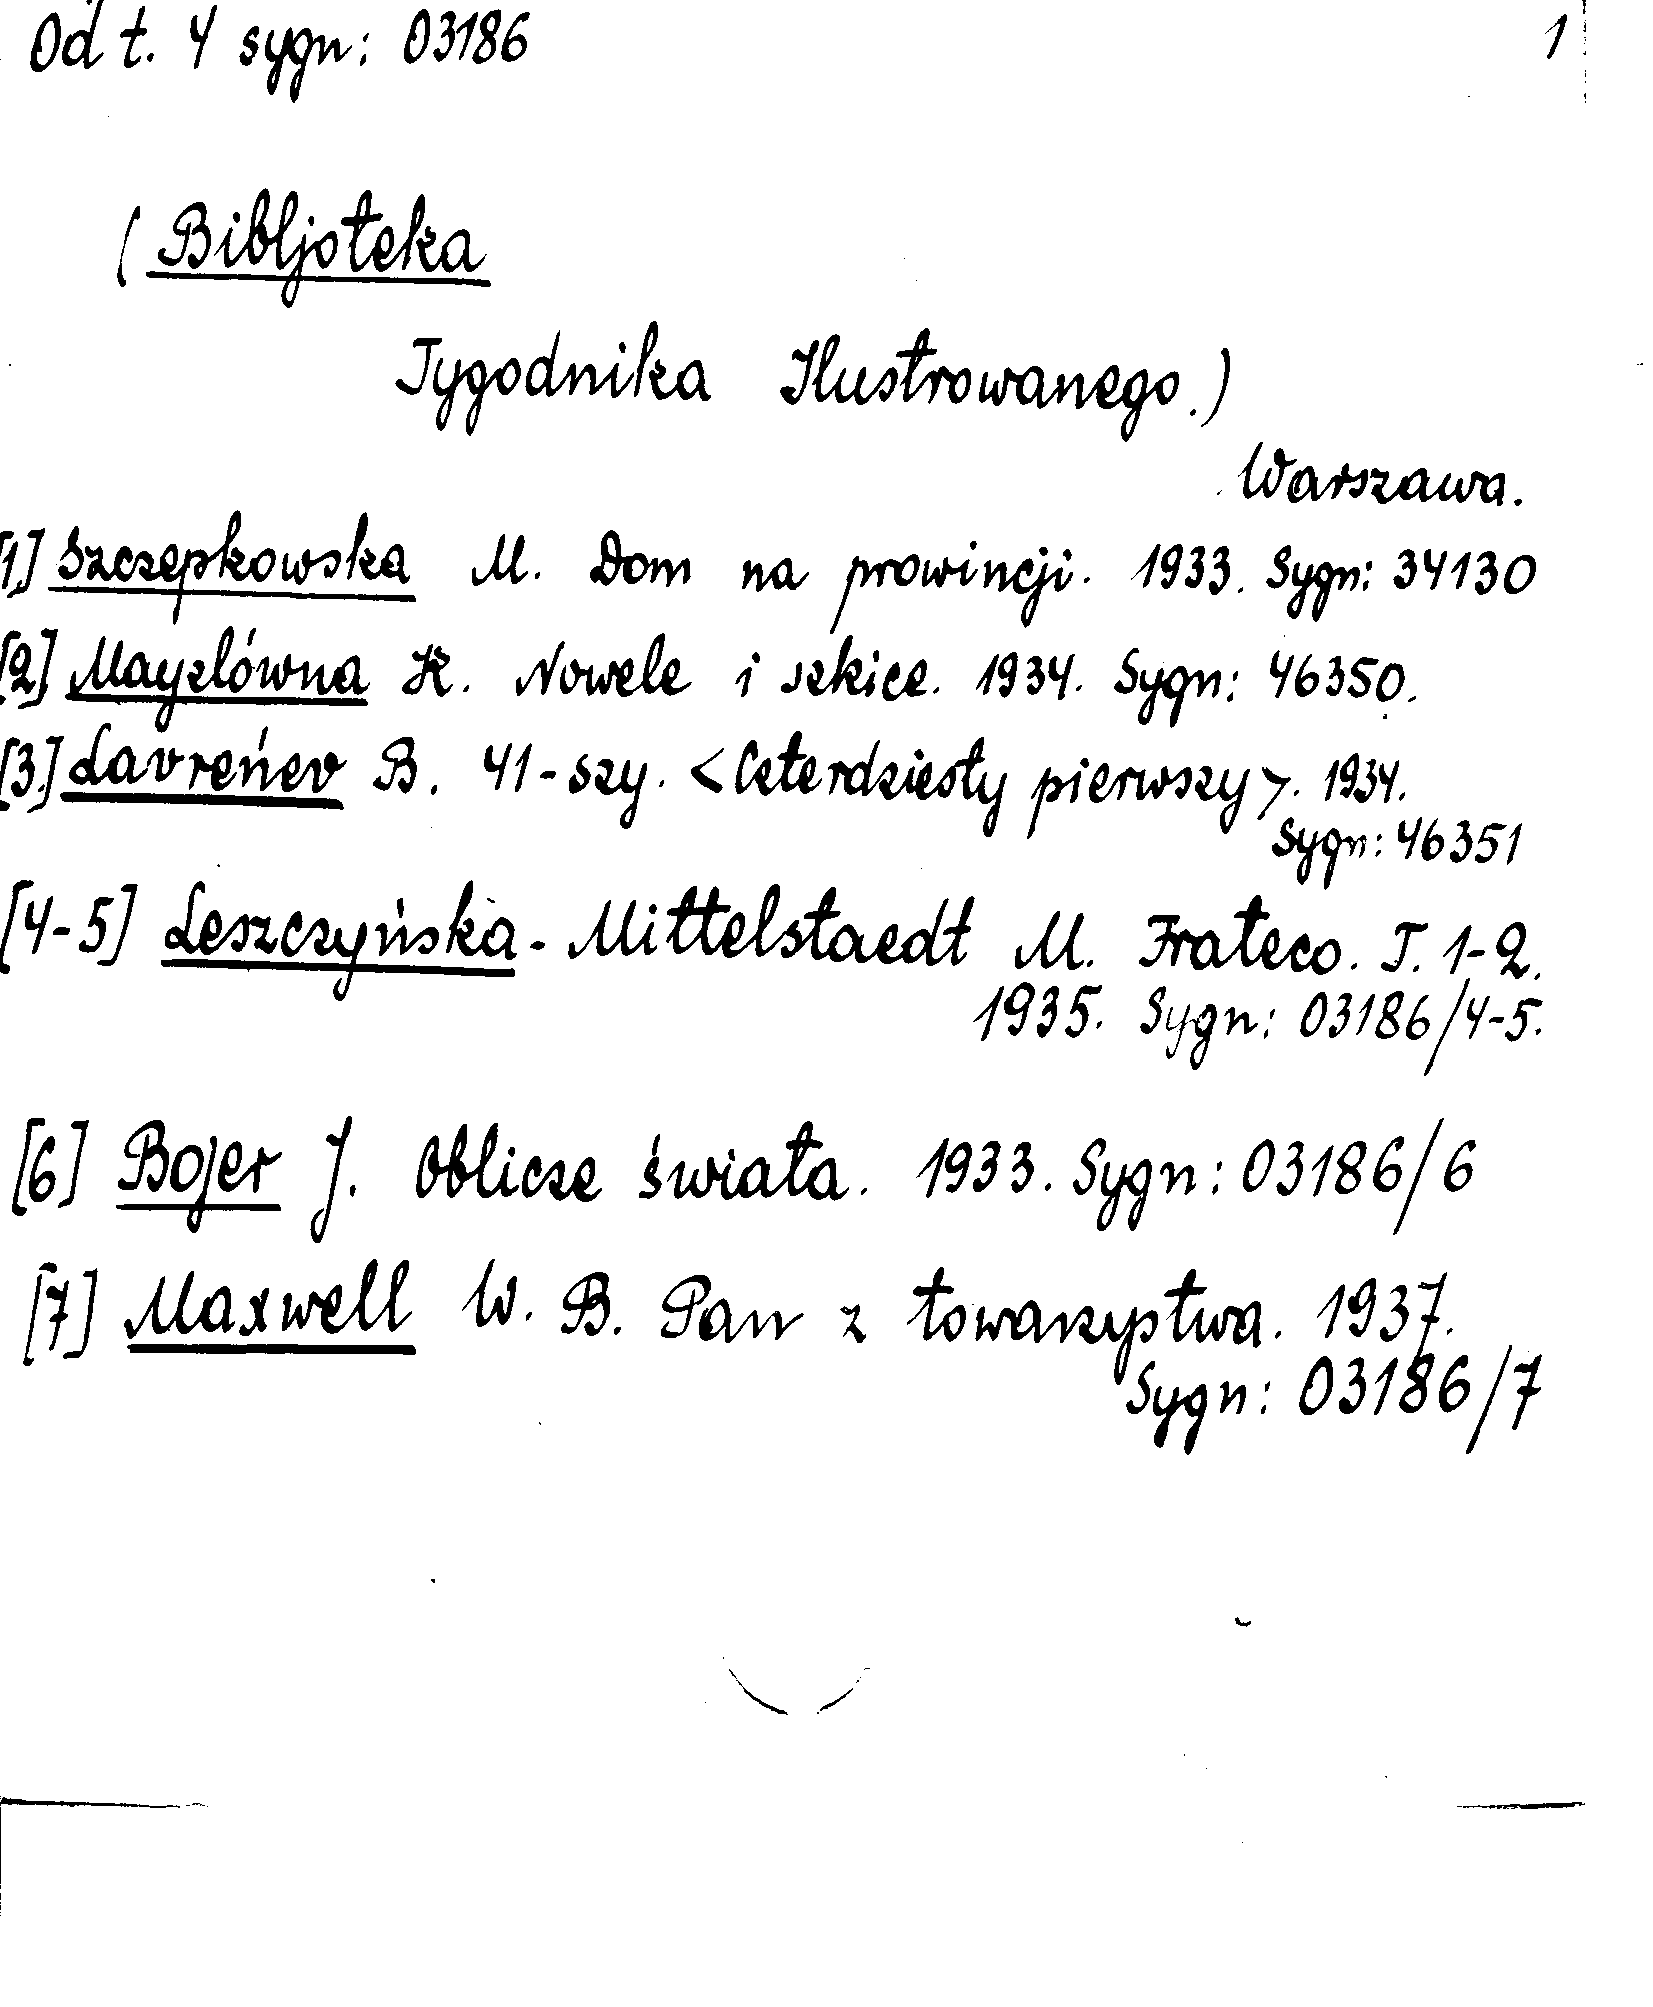 Od t. 4 sygn: 03186 1
(Bibljoteka
Tygodnika Ilustrowanego.)
Warszawa.
[1] Szczepkowska M. Dom na prowincji. 1933. Sygn: 34130
[2] Mayzlówna K. Nowele i szkice. 1934. Sygn: 46350.
[3.] Lavreńev B. 41-szy. <Czterdziesty pierwszy>. 1934.
Sygn: 46351
[4-5] Leszczyńska-Mittelstaedt M. Frateco. T. 1-2.
1935. Sygn: 03186/4-5.
[6] Bojer J. Oblicze świata. 1933. Sygn: 03186/6
[7] Maxwell W. B. Pan z towarzystwa. 1937.
Sygn: 03186/7